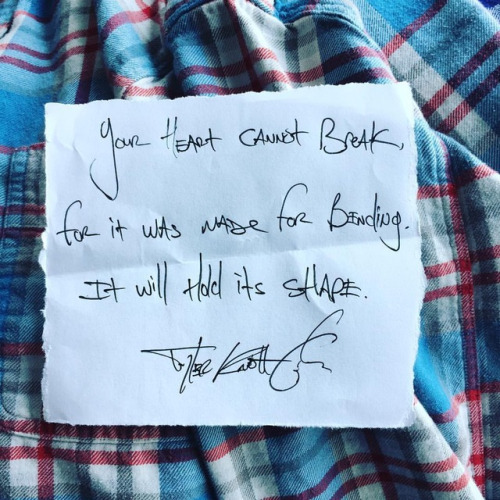 Your Heart cannot Break,
for it was made for Bending.
It will Hold its SHAPE.
Tyler Knott G